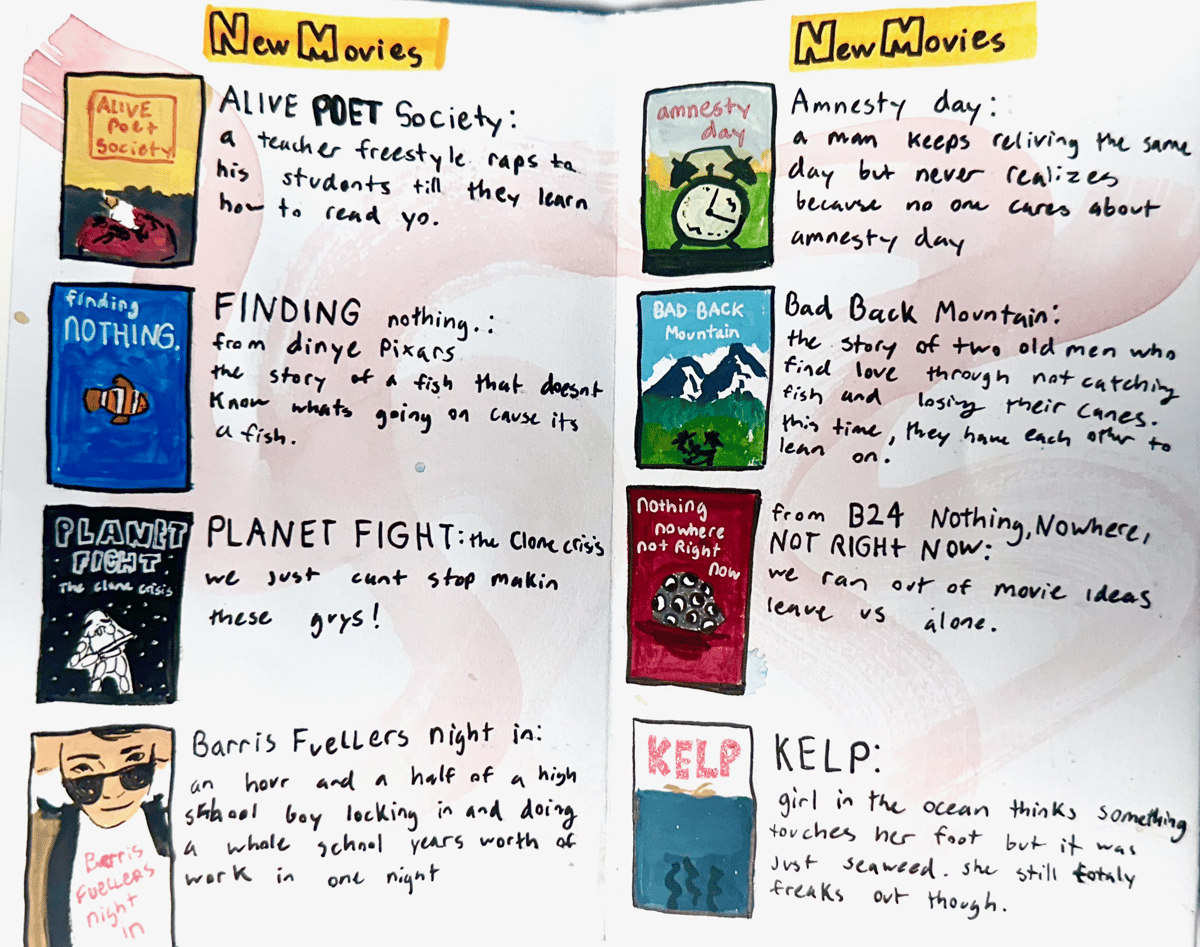 New Movies
ALIVE
Poet
Society
ALIVE POET Society:
a teacher freestyle raps to
his students till they learn
how to read yo.
finding
NOTHING.
FINDING nothing.:
from dinye Pixars
the story of a fish that doesnt
know whats going on cause its
a fish.
PLANET
FIGHT
The clone crisis
PLANET FIGHT: the Clone crisis
we just cant stop makin
these guys!
Barris
Fuellers
night
in
Barris Fuellers night in:
an hour and a half of a high
school boy locking in and doing
a whole school years worth of
work in one night
New Movies
amnesty
day
Amnesty day:
a man keeps reliving the same
day but never realizes
because no one cares about
amnesty day
BAD BACK
Mountain
Bad Back Mountain:
the story of two old men who
find love through not catching
fish and losing their canes.
this time, they have each other to
lean on.
nothing
nowhere
not Right
now
from B24 Nothing, Nowhere,
NOT RIGHT NOW:
we ran out of movie ideas
leave us alone.
KELP
KELP:
girl in the ocean thinks something
touches her foot but it was
just seaweed. she still totaly
freaks out though.